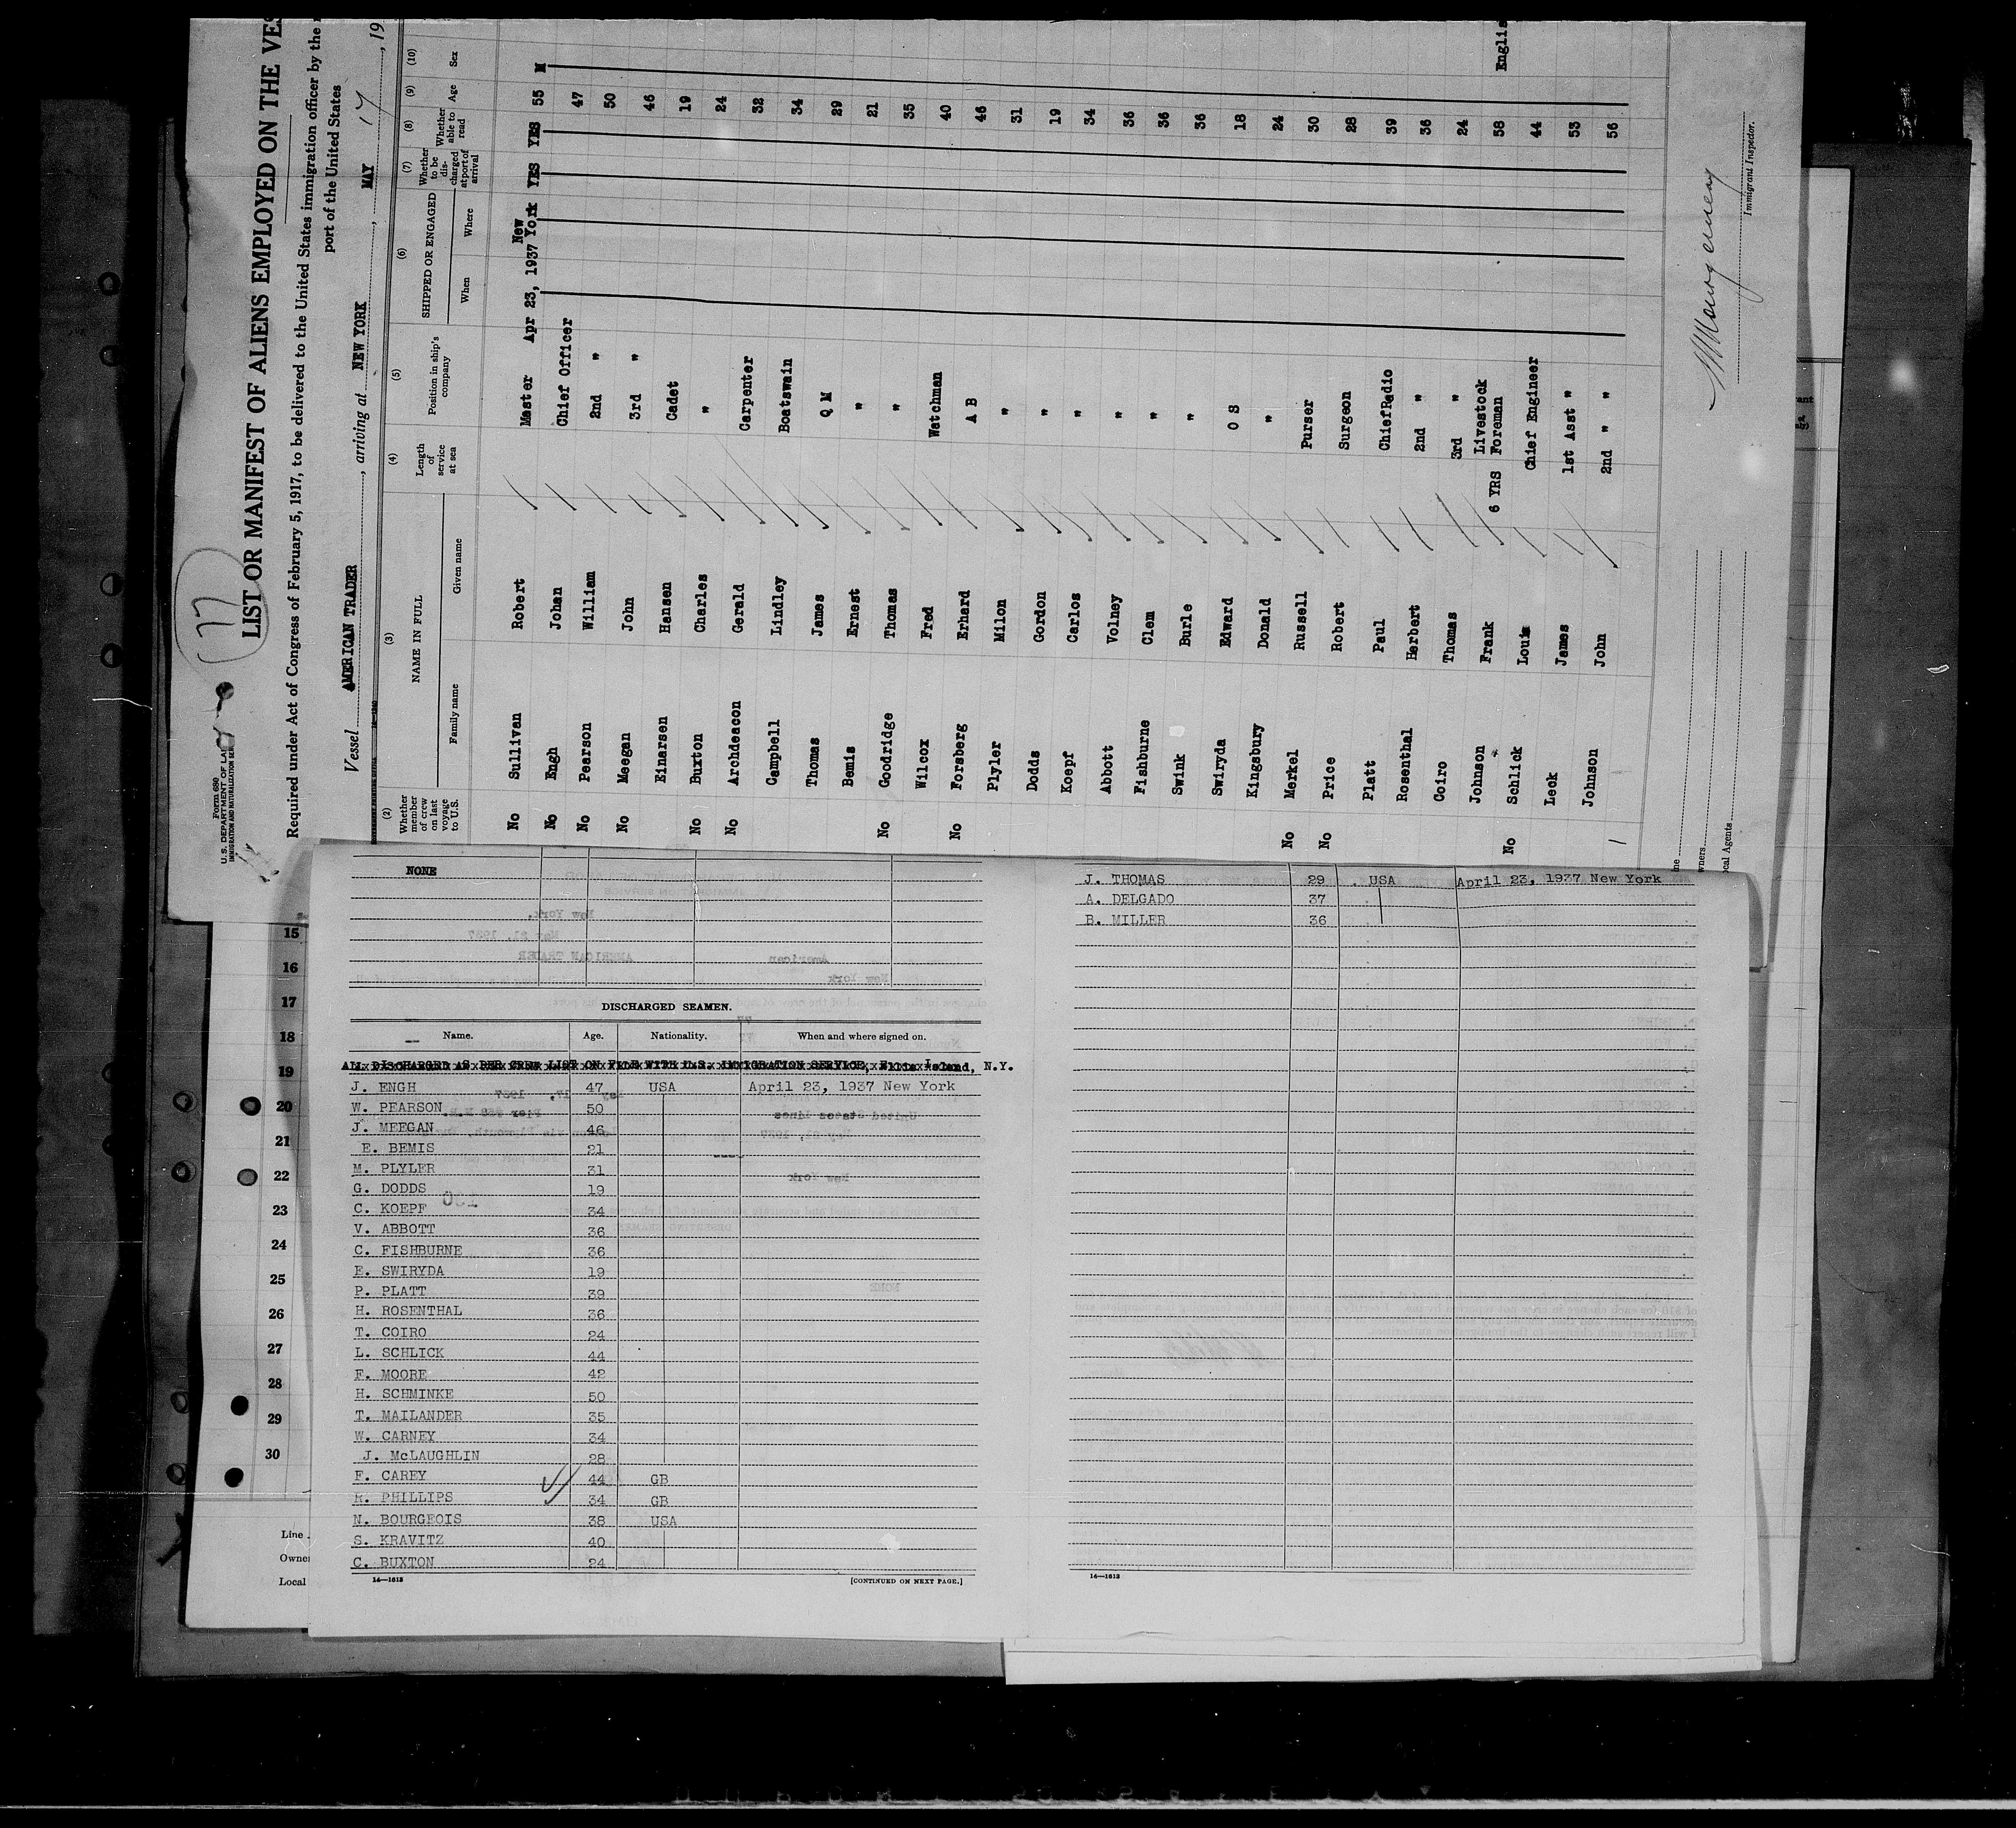 77
Form 680
U.S. DEPARTMENT OF LA
IMMIGRATION AND NATURALIZATION SER
LIST OR MANIFEST OF ALIENS EMPLOYED ON THE VES
Required under Act of Congress of February 5, 1917, to be delivered to the United States immigration officer by the
port of the United States
Vessel AMERICAN TRADER, arriving at NEW YORK, MAY 17, 19
(2) (3) (4) (5) (6) (7) (8) (9) (10)
Whether member of crew on last voyage to U.S. NAME IN FULL Family name Given name Length of service at sea Position in ship's company SHIPPED OR ENGAGED When Where Whether to be discharged at port of arrival Whether able to read Age Sex
No Sullivan Robert Master Apr 23, 1937 New York YES YES 55 M
No Engh Johan Chief Officer 47
No Pearson William 2nd " 50
No Meegan John 3rd " 46
Einarsen Hansen Cadet 19
No Buxton Charles " 24
No Archdeacon Gerald Carpenter 32
Campbell Lindley Boatswain 34
Thomas James Q M 29
Bemis Ernest " 21
No Goodridge Thomas " 35
Wilcox Fred Watchman 40
No Forsberg Erhard A B 46
Plyler Milon " 31
Dodds Gordon " 19
Koepf Carlos " 34
Abbott Volney " 36
Fishburne Clem " 36
Swink Burle " 36
Swiryda Edward O S 18
Kingsbury Donald " 24
No Merkel Russell Purser 30
No Price Robert Surgeon 28
Platt Paul Chief Radio 39
Rosenthal Herbert 2nd " 36
Coiro Thomas 3rd " 24
Johnson Frank 6 YRS Livestock Foreman 58 Englis
No Schlick Louis Chief Engineer 44
Leck James 1st Asst " 53
Johnson John 2nd " " 56
Immigrant Inspector.
wners
cal Agents
15
16
17
18
19
20
21
22
23
24
25
26
27
28
29
30
Line
Owner
Local
NONE
DISCHARGED SEAMEN.
Name. Age. Nationality. When and where signed on.
ALL DISCHARGED AS PER CREW LIST ON FILE WITH U.S. IMMIGRATION SERVICE, Ellis Island, N.Y.
J. ENGH 47 USA April 23, 1937 New York
W. PEARSON 50
J. MEEGAN 46
E. BEMIS 21
M. PLYLER 31
G. DODDS 19
C. KOEPF 34
V. ABBOTT 36
C. FISHBURNE 36
E. SWIRYDA 19
P. PLATT 39
H. ROSENTHAL 36
T. COIRO 24
L. SCHLICK 44
F. MOORE 42
H. SCHMINKE 50
T. MAILANDER 35
W. CARNEY 34
J. McLAUGHLIN 28
F. CAREY 44 GB
R. PHILLIPS 34 GB
N. BOURGEOIS 38 USA
S. KRAVITZ 40
C. BUXTON 24
14—1613 [CONTINUED ON NEXT PAGE.]
J. THOMAS 29 USA April 23, 1937 New York
A. DELGADO 37
B. MILLER 36
14—1613